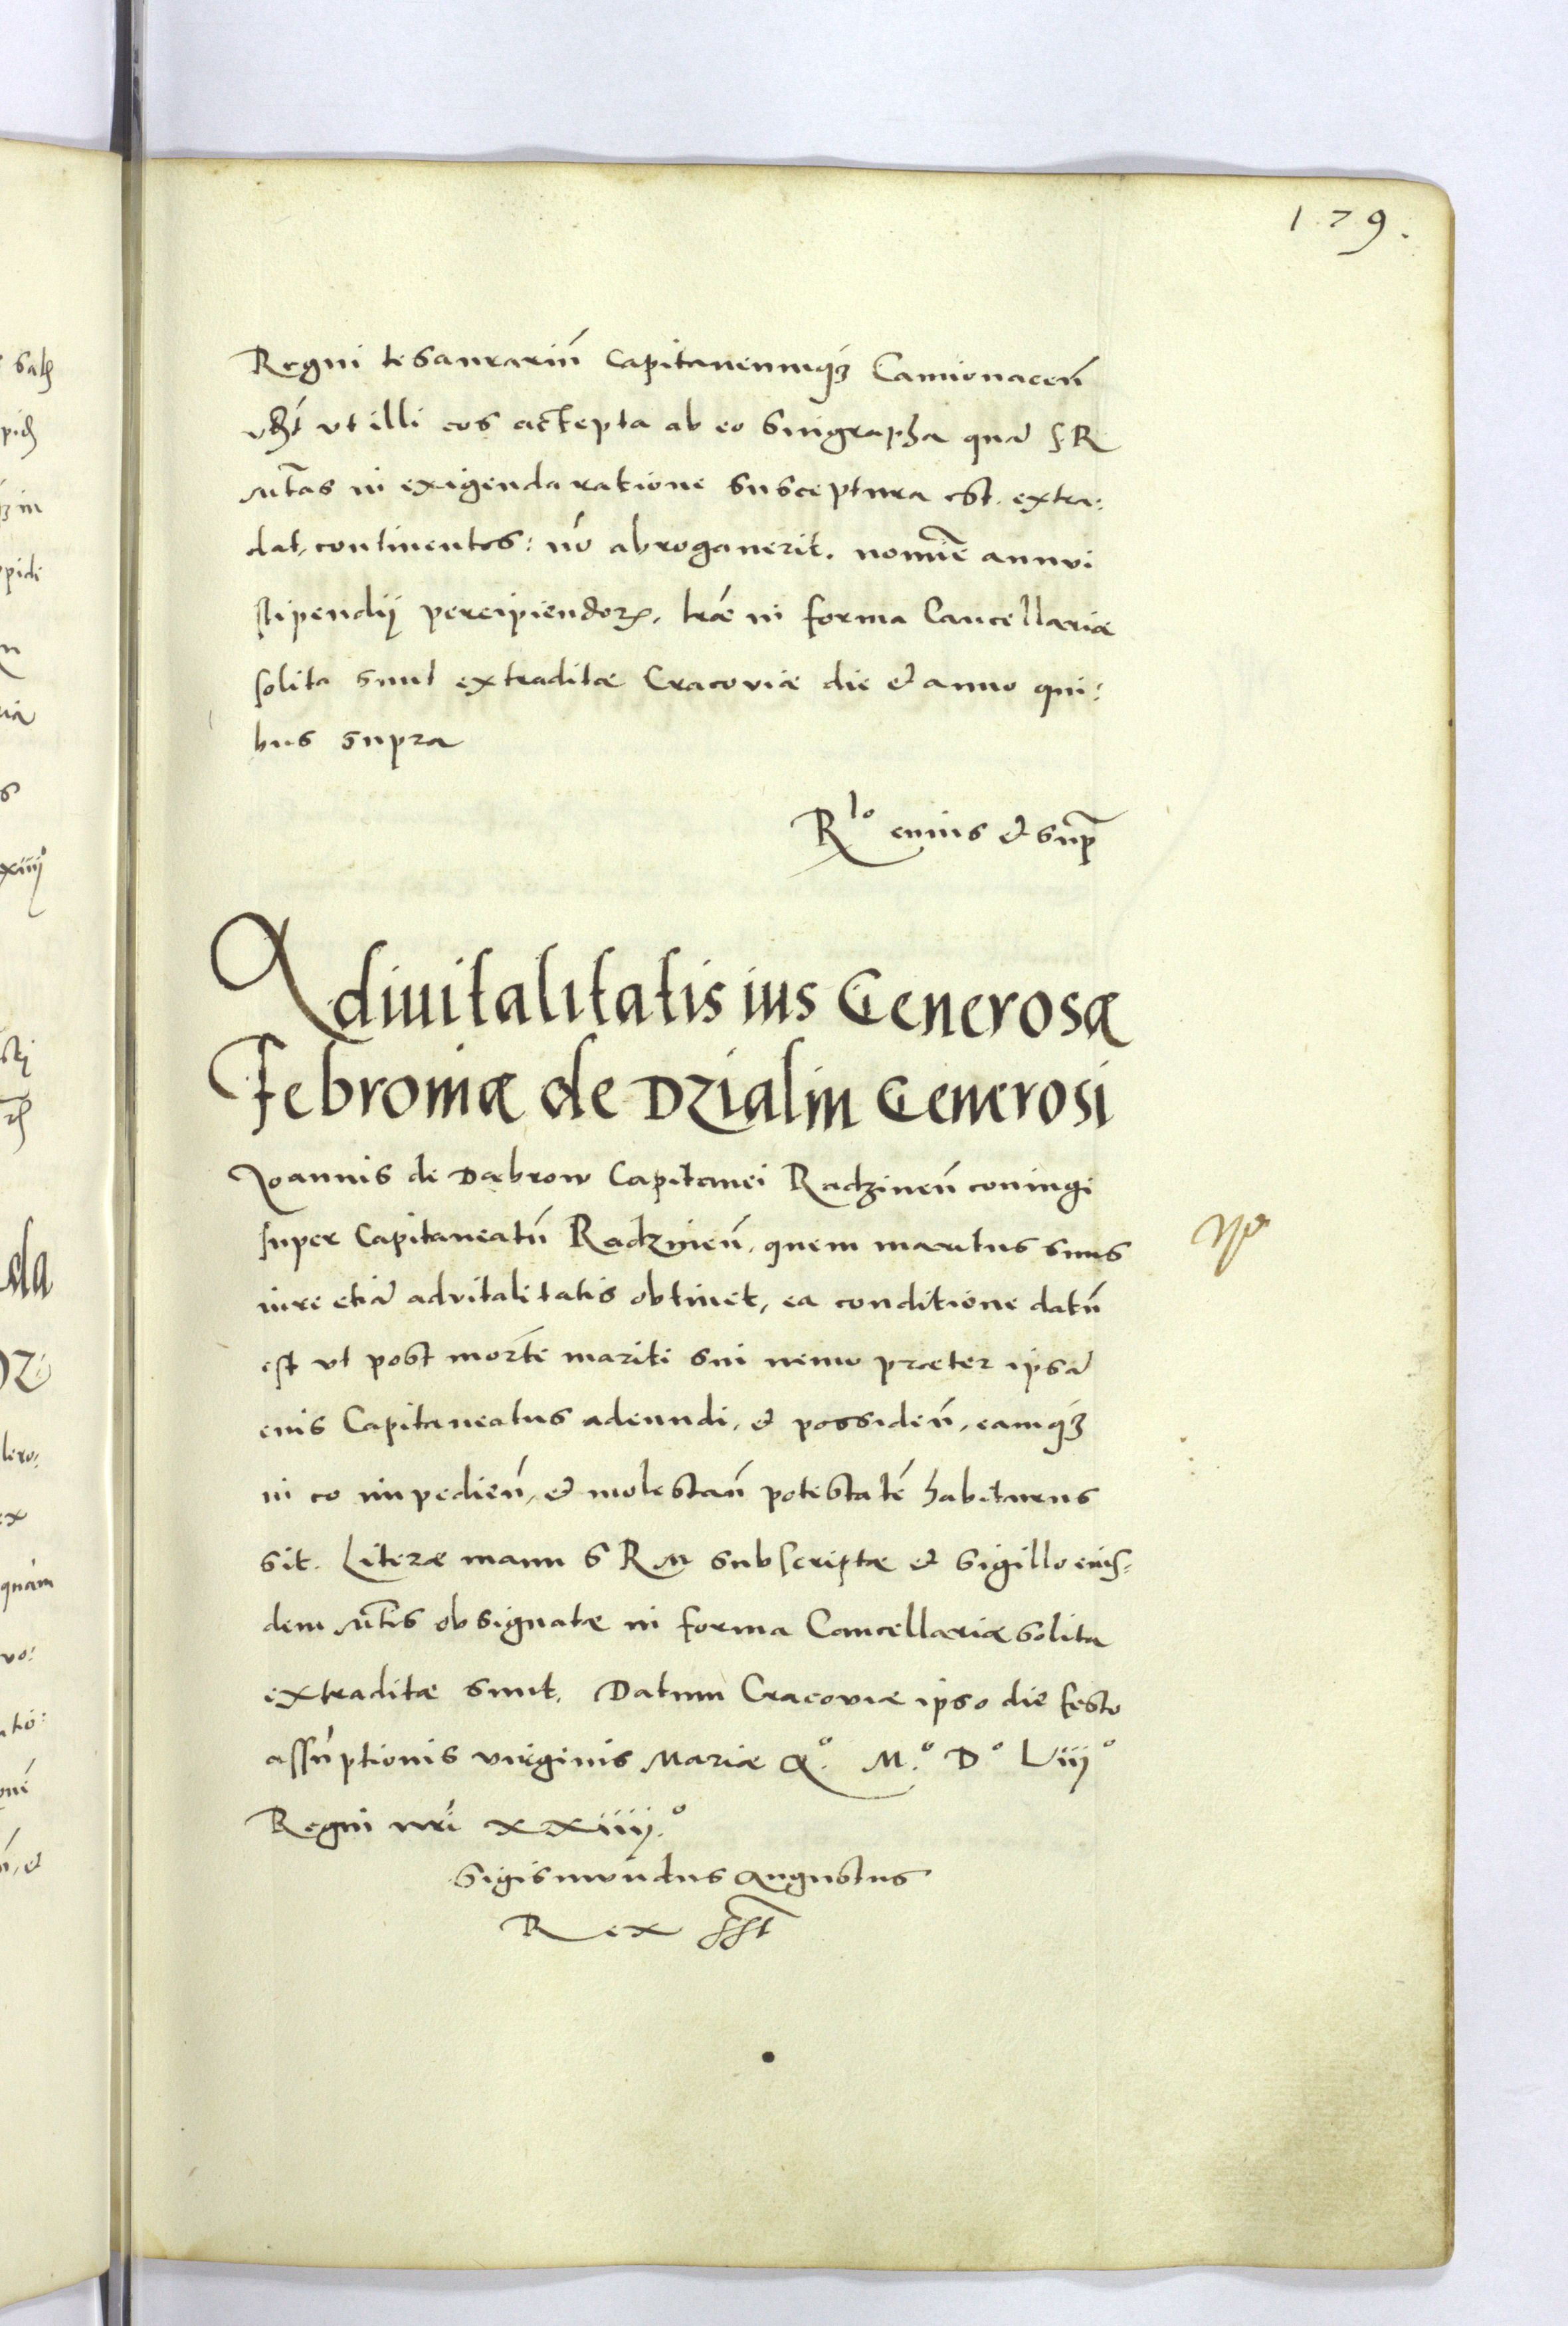 179.
Regni tesaurariū Capitaneumq́ꝫ Camionaceñ
ut illi eos accepta ab eo singrapha quā S R
Mtas in exigenda ratione susceptura est. extra:
dat, continentes: nō abrogauerit. nomīe annui
stipendij percipiendoꝝ, lr̄ae in forma Cancellariæ
solita sunt extraditæ Cracoviæ die et anno qui:
bus supra
Rlo cuius et supͣ
Aduitalitatis ius Generosæ
Febroniæ de Dzialin Generosi
Joannis de Dąbrow Capitanei Radzineñ coniugi
super Capitaneatū Radzyneñ, quem maritus suus
iure etiā advitalitatis obtinet, ea conditione datū
est ut post mortē mariti sui nemo præter ipsā
eius Capitaneatus adeundi, et possideñ, eamq́ꝫ
in eo impedieñ, et molestañ potestatē habiturus
sit. Literæ manu S R M subscriptæ et sigillo eius-
dem Mtis obsignatæ in forma Cancellariæ solita
extraditæ sunt. Datum Cracoviæ ipso die festo
assūptionis virginis Mariæ Aº. M.º Dº Liiijº
Regni nr̄i xxiiij.º
Sigismundus Augustus
Rex sst